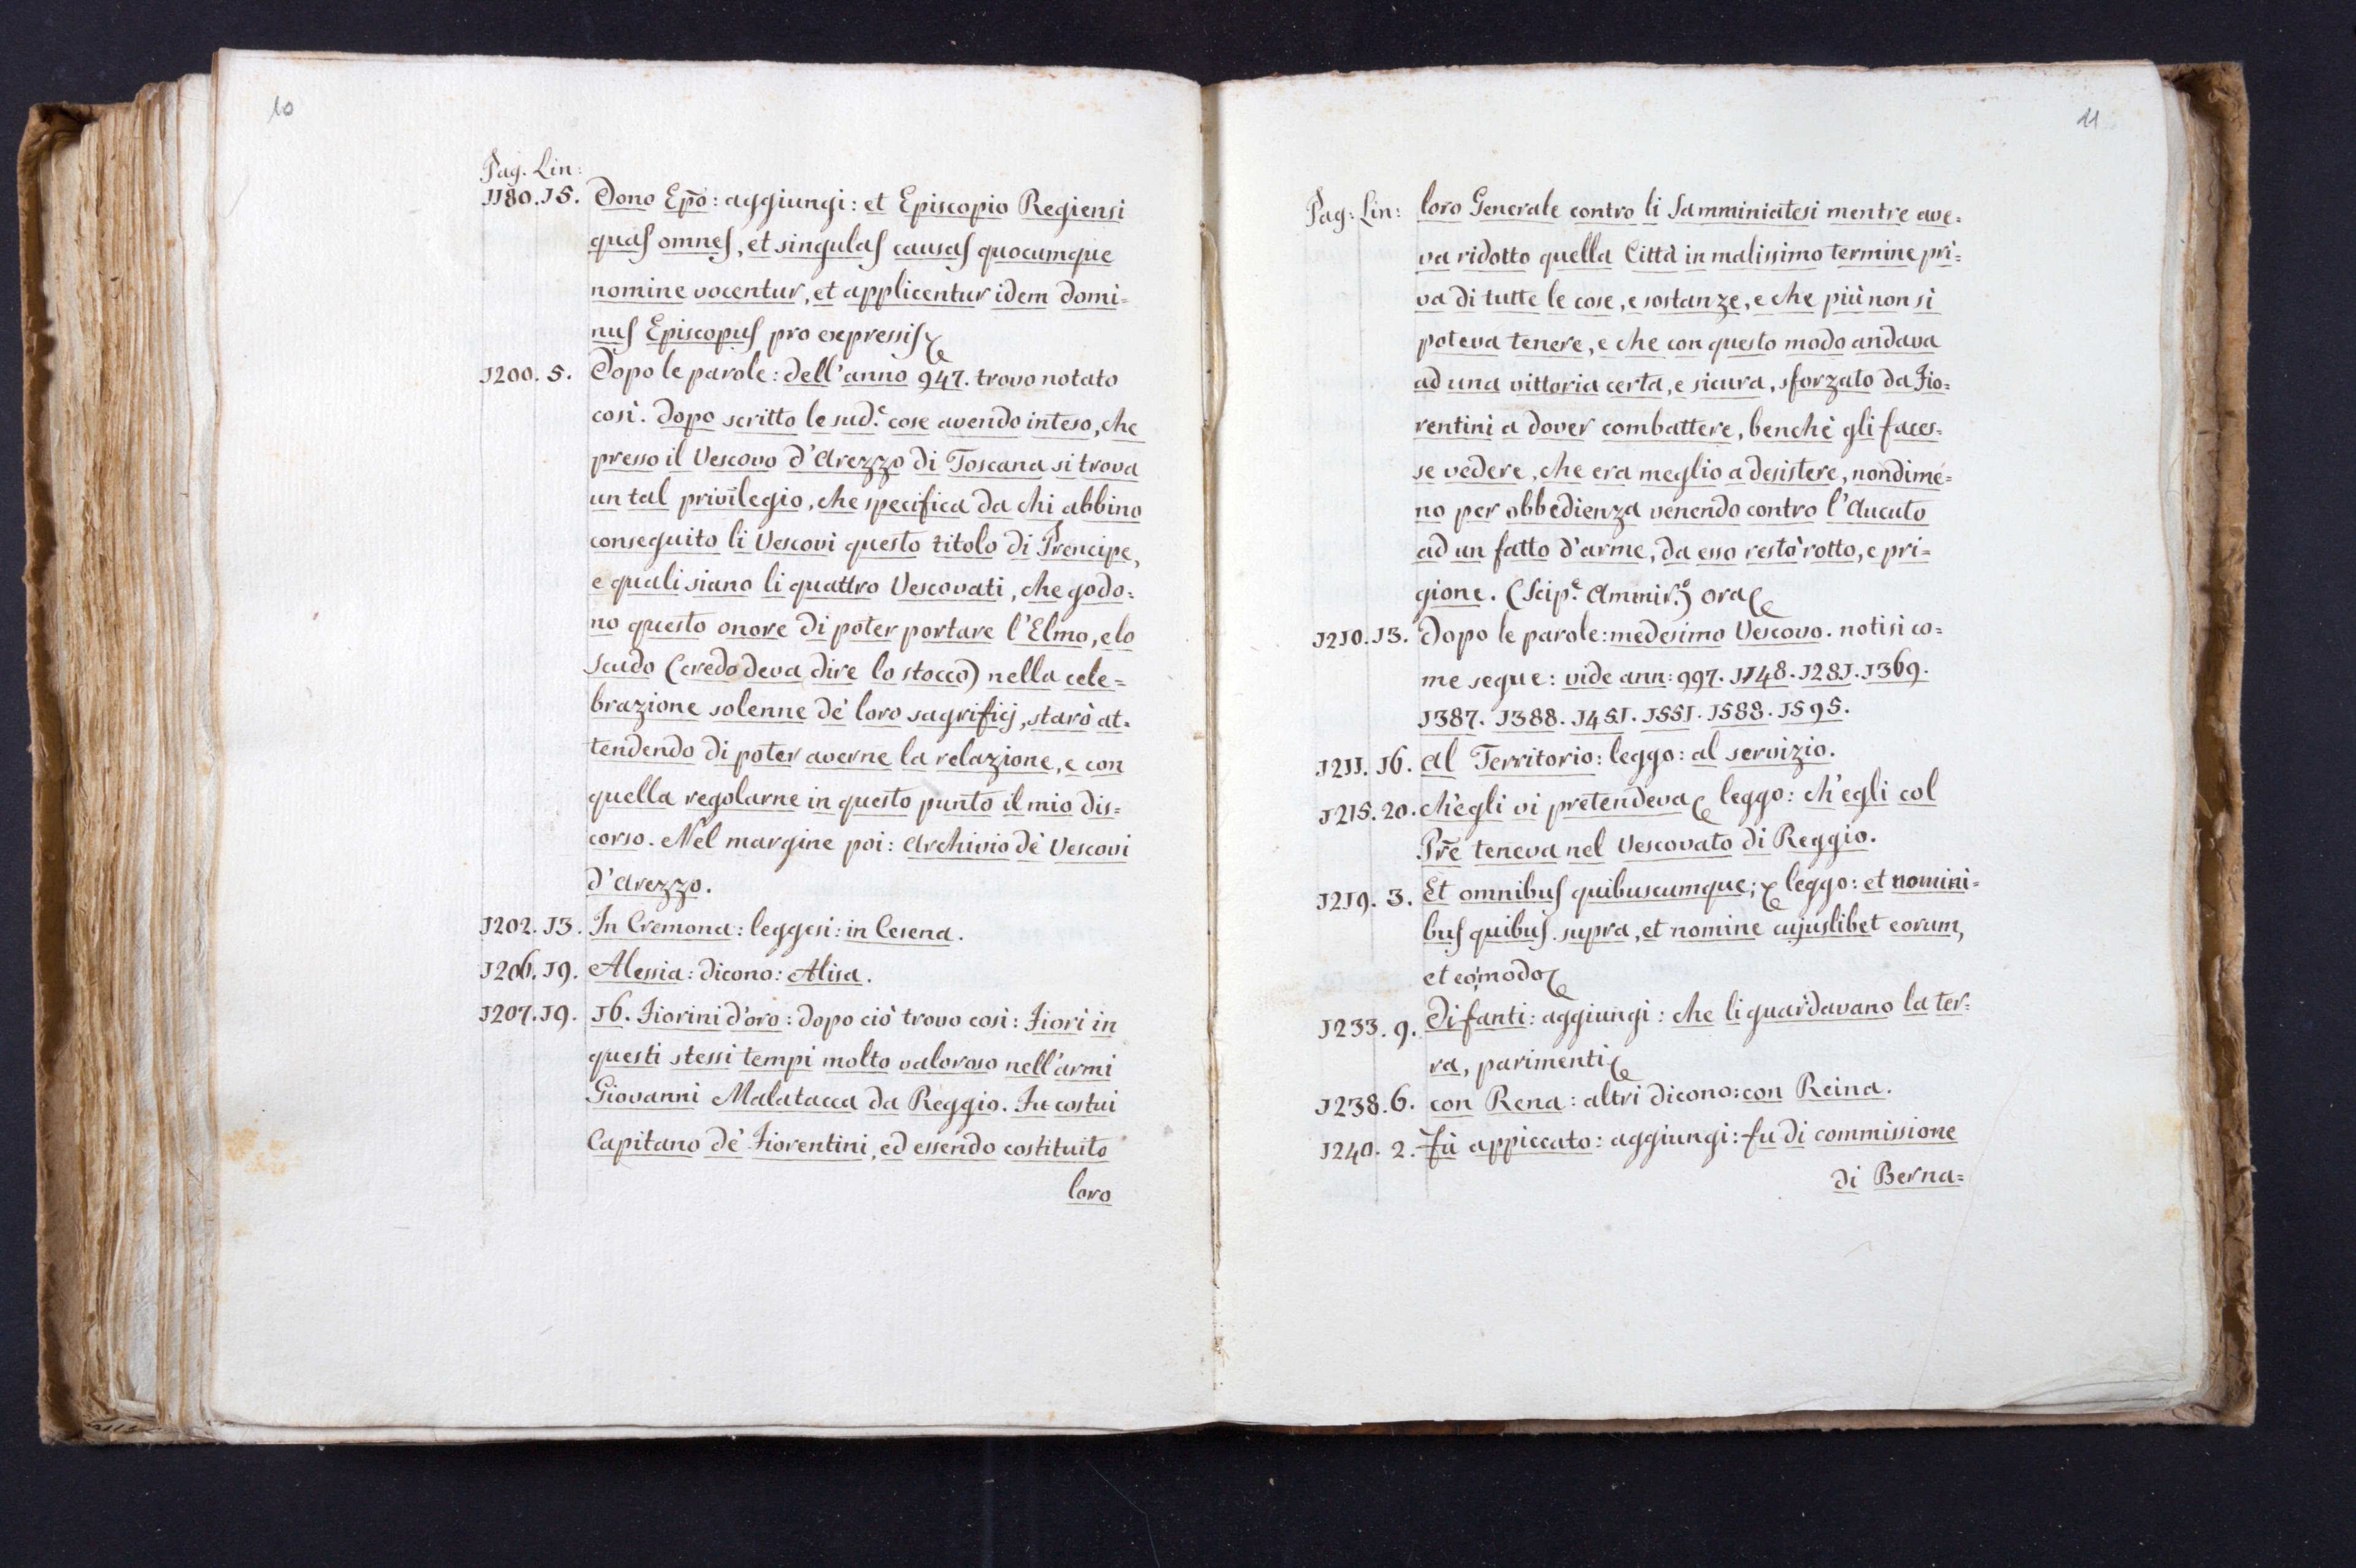 10
Pag. Lin:
1180. 15. Dono Epõ: aggiungi: et Episcopio Regiensi
quas omnes, et singulas causas quocumque
nomine vocentur, et applicentur idem Domi=
nus Episcopus pro expressis
1200. 5. Dopo le parole: dell'anno 947. trovo notato
così. Dopo scritto le sud.e cose avendo inteso, che
presso il Vescovo d'Arezzo di Toscana si trova
un tal privilegio, che specifica da chi abbino
conseguito li Vescovi questo titolo di Prencipe,
e quali siano li quattro Vescovati, che godo=
no questo onore di poter portare l'Elmo, e lo
scudo (credo deva dire lo stocco) nella cele=
brazione solenne de' loro sagrificj, starò at=
tendendo di poter averne la relazione, e con
quella regolarne in questo punto il mio dis=
corso. Nel margine poi: Archivio de' Vescovi
d'Arezzo.
1202. 13. In Cremona: leggesi: in Cesena.
1206. 19. Alessia: dicono: Alisa.
1207. 19. 16. Fiorini d'oro: dopo ciò trovo così: Fiorì in
questi stessi tempi molto valoroso nell'armi
Giovanni Malatacca da Reggio. Fu costui
Capitano de' Fiorentini, ed essendo costituito
loro
11
Pag: Lin: loro Generale contro li Samminiatesi mentre ave=
va ridotto quella Città in malissimo termine pri=
va di tutte le cose, e sostanze, e che più non si
poteva tenere, e che con questo modo andava
ad una vittoria certa, e sicura, sforzato da Fio=
rentini a dover combattere, benchè gli faces=
se vedere, che era meglio a desistere, nondime=
no per obbedienza venendo contro l'Aucuto
ad un fatto d'arme, da esso restò rotto, e pri=
gione. (Scip.e Ammir.o) ora
1210. 13. Dopo le parole: medesimo Vescovo. notisi co=
me segue: vide ann: 997. 1148. 1281. 1369.
1387. 1388. 1451. 1551. 1588. 1595.
1211. 16. Al Territorio: leggo: al servizio.
1215. 20. ch'egli vi pretendeva leggo: ch'egli col
Prẽ teneva nel Vescovato di Reggio.
1219. 3. Et omnibus quibuscumque; leggo: et nomini=
bus quibus supra, et nomine cujuslibet eorum,
et eo modo
1233. 9. Di fanti: aggiungi: che li guardavano la ter=
ra, parimenti
1238. 6. con Rena: altri dicono: con Reina.
1240. 2. Fù appiccato: aggiungi: fu di commissione
di Berna=